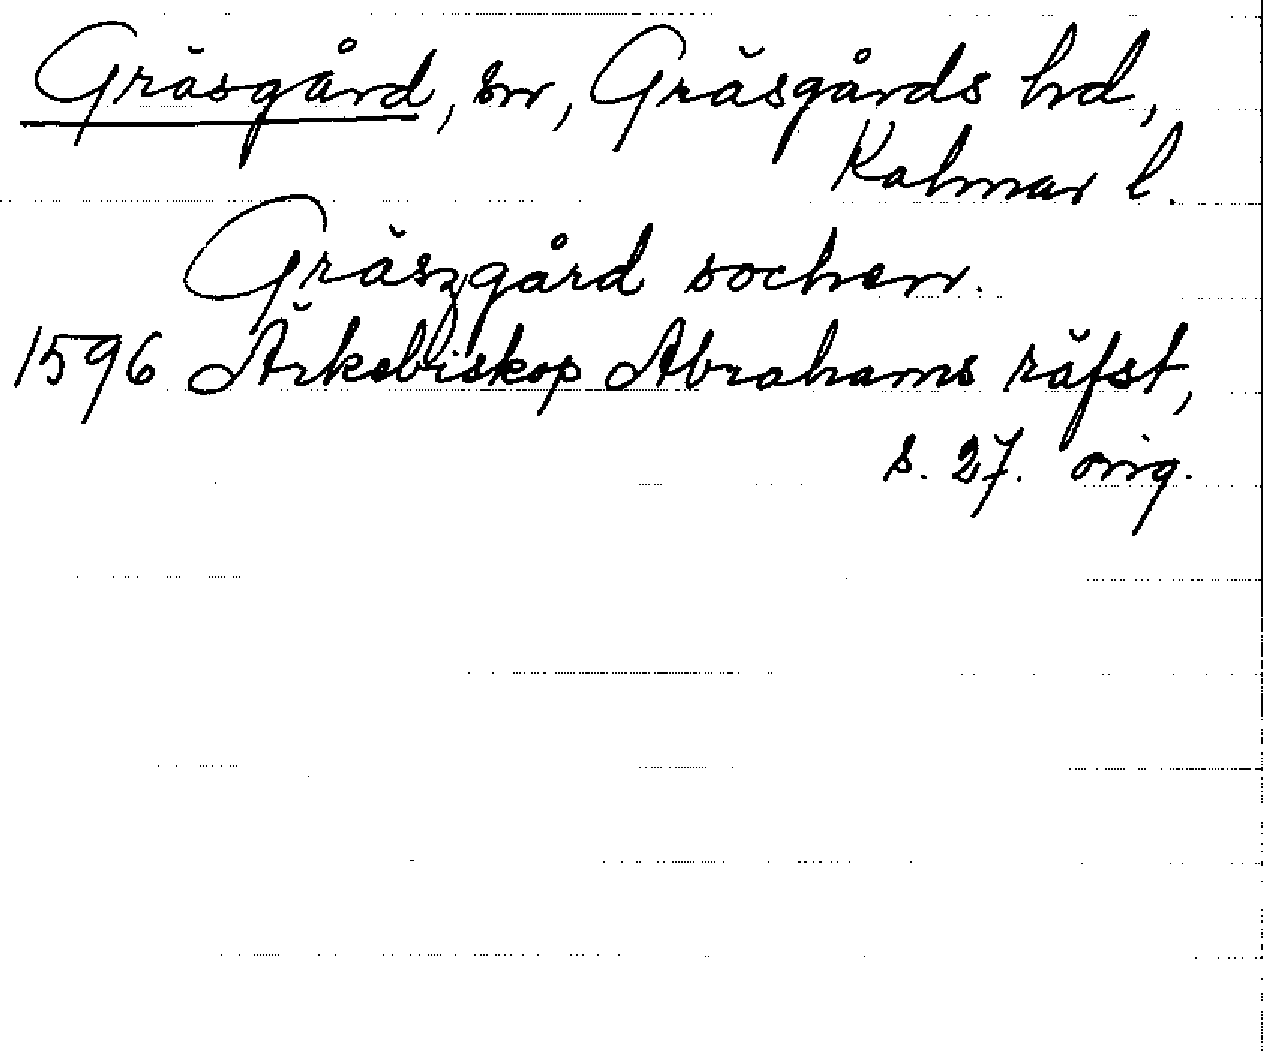 Gräsgård, sn, Gräsgårds hd,
Kalmar l.
Gräszgård sochen.
1596 Ärkebiskop Abrahams räfst,
s. 27. orig.